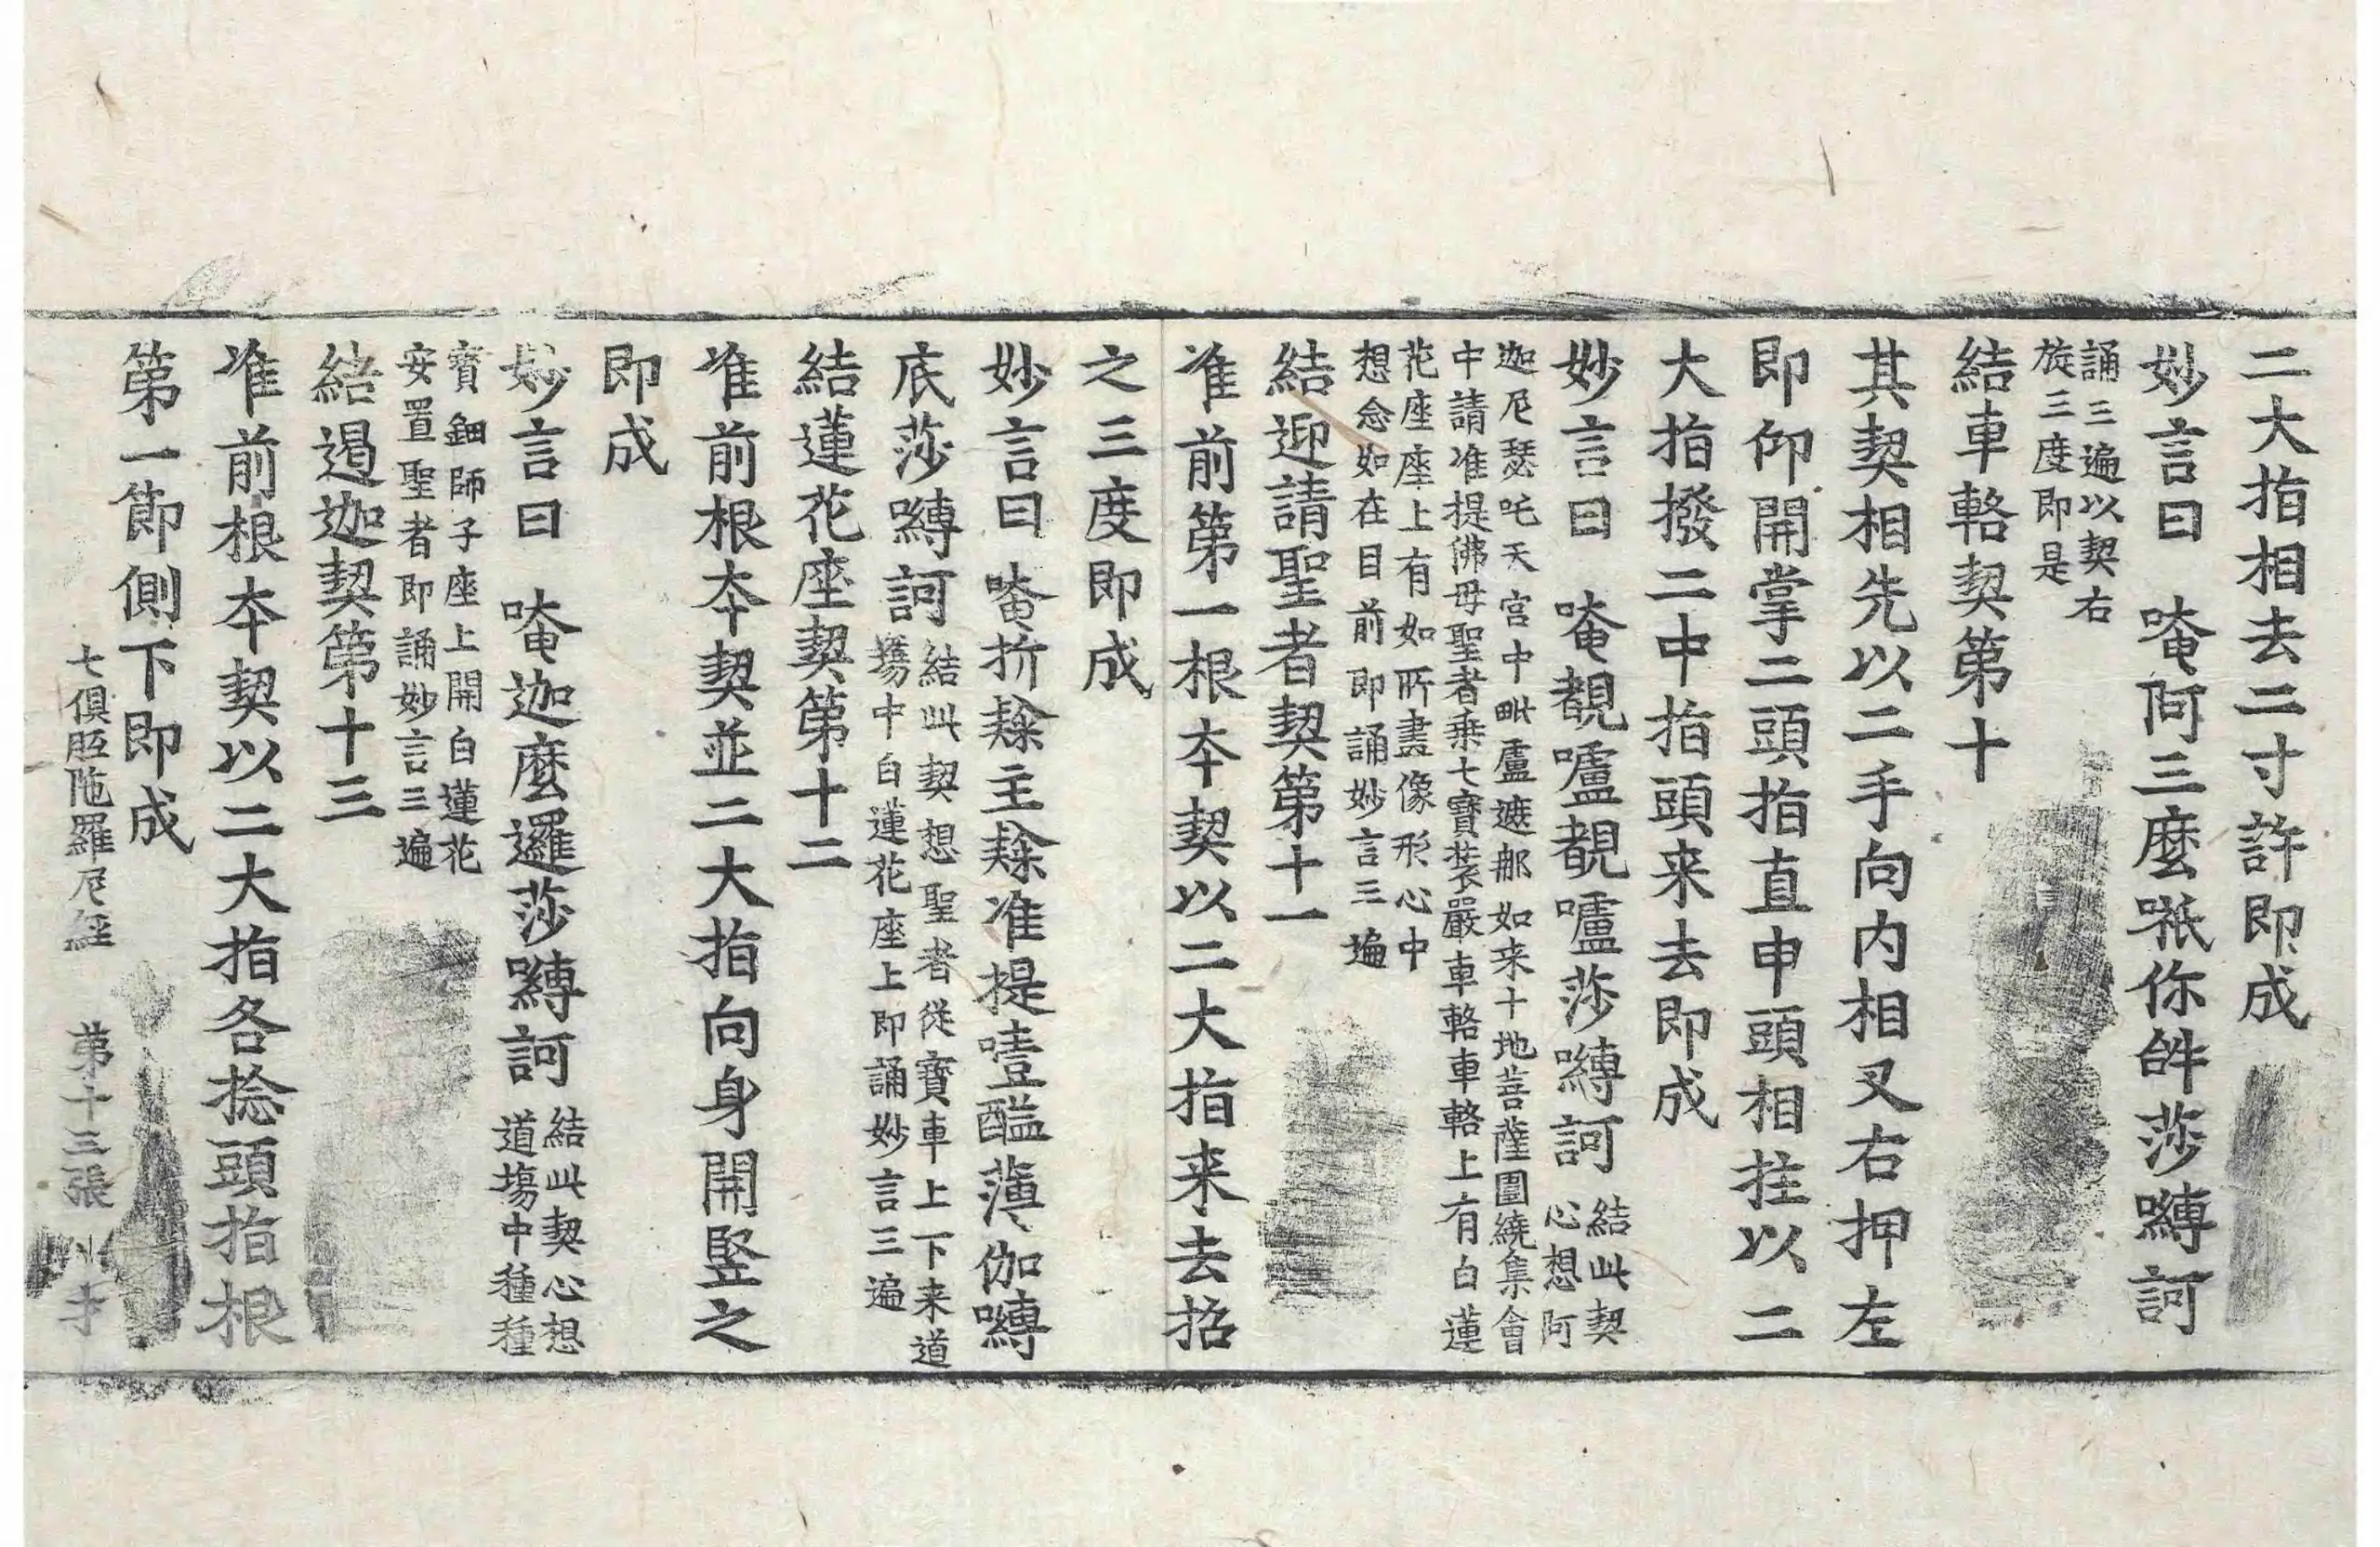 二大指相去二寸許即成
妙言曰 唵阿三麼祇你𤙖莎嚩訶
誦三遍以契右
旋三度即是
結車輅契第十
其契相先以二手向内相叉右押左
即仰開掌二頭指直申頭相拄以二
大指撥二中指頭来去即成
妙言曰 唵覩嚧覩嚧莎嚩訶
結此契
心想阿
迦尼瑟吒天宮中毗盧遮那如来十地菩薩圍繞集會
中請准提佛母聖者乗七寶荘嚴車輅車輅上有白蓮
花座座上有如所畫像形心中
想念如在目前即誦妙言三遍
結迎請聖者契第十一
准前第一根本契以二大指来去招
之三度即成
妙言曰 唵折隸主隸准提噎醯薄伽嚩
底莎嚩訶
結此契想聖者從寶車上下来道
塲中白蓮花座上即誦妙言三遍
結蓮花座契第十二
准前根本契並二大指向身開竪之
即成
妙言曰 唵迦麼邏莎嚩訶
結此契心想
道塲中種種
寶鈿師子座上開白蓮花
安置聖者即誦妙言三遍
結遏迦契第十三
准前根本契以二大指各捻頭指根
第一節側下即成
七俱胝陁羅尼經 第十三張 才